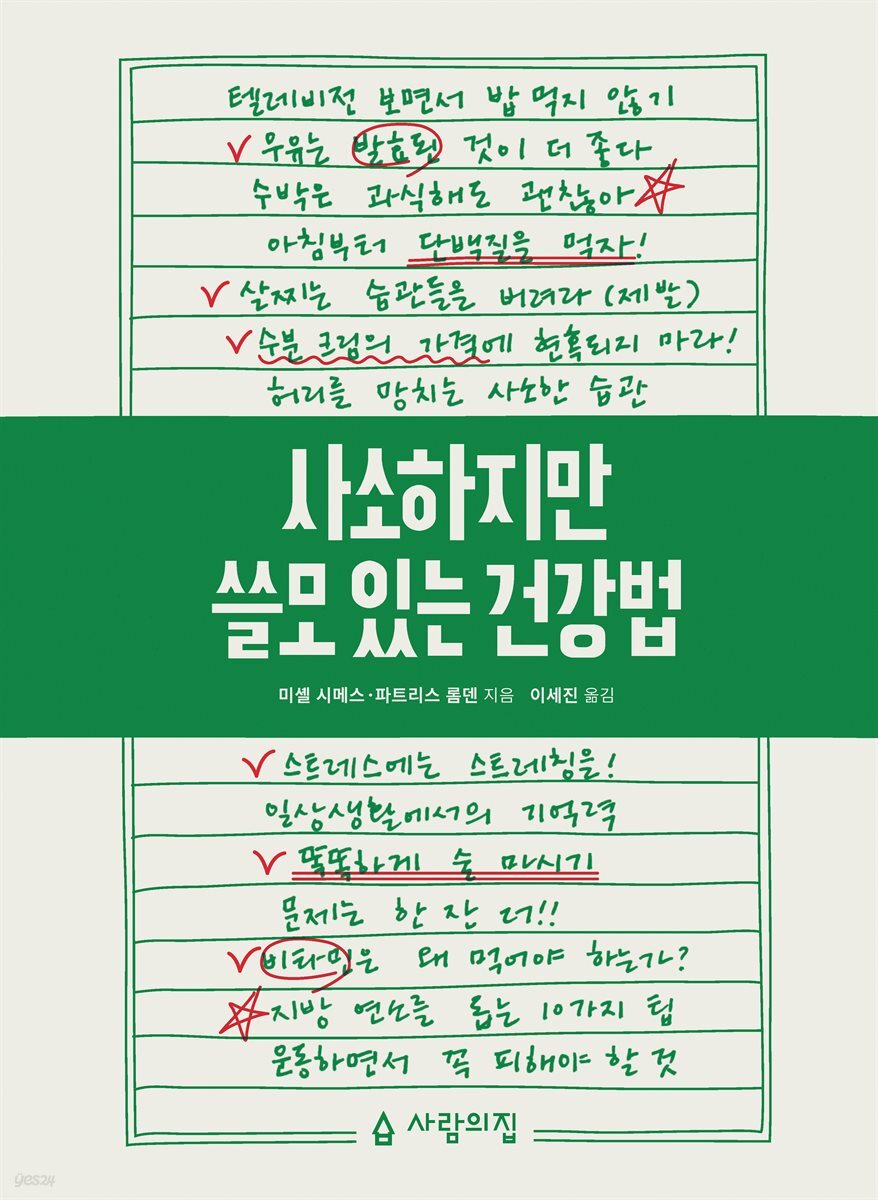 텔레비전 보면서 밥 먹지 않기
우유는 발효된 것이 더 좋다
수박은 과식해도 괜찮아
아침부터 단백질을 먹자!
살찌는 습관들을 버려라 (제발)
수분 크림의 가격에 현혹되지 마라!
허리를 망치는 사소한 습관
사소하지만
쓸모 있는 건강법
미셸 시메스·파트리스 롬덴 지음 이세진 옮김
스트레스에는 스트레칭을!
일상생활에서의 기억력
똑똑하게 술 마시기
문제는 한 잔 더!!
비타민은 왜 먹어야 하는가?
지방 연소를 돕는 10가지 팁
운동하면서 꼭 피해야 할 것
사람의집
yes24